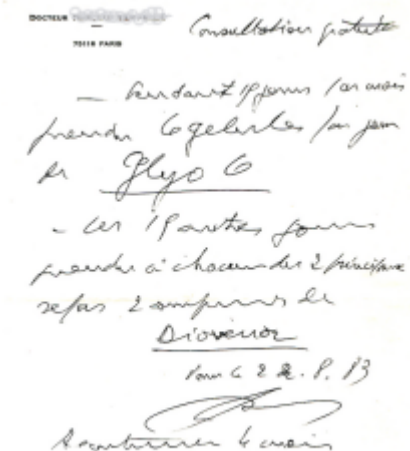 DOCTEUR
75116 PARIS
Consultation gratuite
— Pendant 15 jours par mois
prendre 6 gelules par jour
de Glyo 6
- les 15 autres jours
prendre à chacun des 2 principaux
repas 2 ampoules de
Diovenor
Paris le 22. 8. 83
A continuer 4 mois